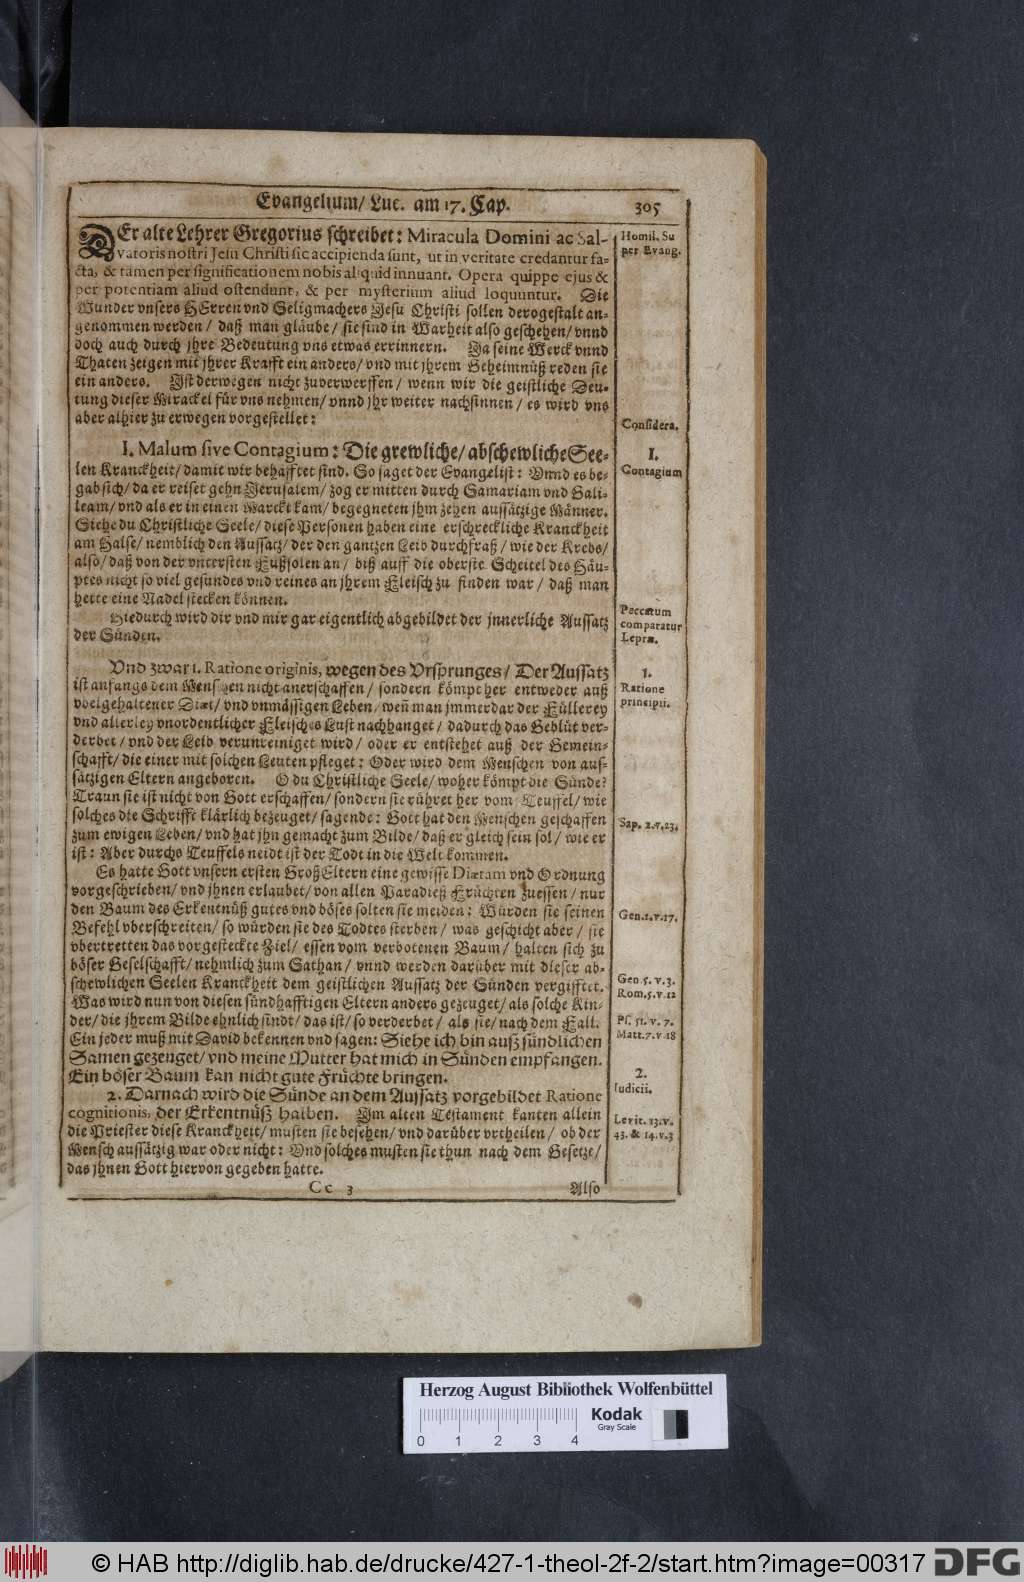 Evangelium/ Luc. am 17. Cap.
305
DEr alte Lehrer Gregorius schreibet: Miracula Domini ac Sal-
vatoris nostri Jesu Christi sic accipienda sunt, ut in veritate credantur fa-
cta, & tamen per significationem nobis aliquid innuant. Opera quippe ejus &
per potentiam aliud ostendunt, & per mysterium aliud loquuntur. Die
Wunder vnsers HErren vnd Seligmachers Jesu Christi sollen derogestalt an-
genommen werden/ daß man gläube/ sie sind in Warheit also geschehen/ vnnd
doch auch durch jhre Bedeutung vns etwas errinnern. Ja seine Werck vnnd
Thaten zeigen mit jhrer Krafft ein anders/ vnd mit jhrem Geheimnüß reden sie
ein anders. Ist derwegen nicht zuverwerffen/ wenn wir die geistliche Deu-
tung dieser Mirackel für vns nehmen/ vnnd jhr weiter nachsinnen/ es wird vns
aber alhier zu erwegen vorgestellet:
Homil. Su
per Evang.
Considera.
I. Malum sive Contagium: Die grewliche/ abschewliche See-
len Kranckheit/ damit wir behafftet sind. So saget der Evangelist: Vnnd es be-
gab sich/ da er reiset gehn Jerusalem/ zog er mitten durch Samariam vnd Gali-
leam/ vnd als er in einen Marckt kam/ begegneten jhm zehen aussätzige Männer.
Siehe du Christliche Seele/ diese Personen haben eine erschreckliche Kranckheit
am Halse/ nemblich den Aussatz/ der den gantzen Leib durchfraß/ wie der Krebs/
also/ daß von der vntersten Fußsolen an/ biß auff die oberste Scheitel des Häu-
ptes nicht so viel gesundes vnd reines an jhrem Fleisch zu finden war/ daß man
hette eine Nadel stecken können.
I.
Contagium
Hiedurch wird dir vnd mir gar eigentlich abgebildet der jnnerliche Aussatz
der Sünden.
Peccatum
comparatur
Lepræ.
Vnd zwar 1. Ratione originis, wegen des Vrsprunges/ Der Aussatz
ist anfangs dem Menschen nicht anerschaffen/ sondern kömpt her entweder auß
vbelgehaltener Diæt/ vnd vnmässigen Leben/ weñ man jmmerdar der Füllerey
vnd allerley vnordentlicher Fleisches Lust nachhanget/ dadurch das Geblüt ver-
derbet/ vnd der Leib verunreiniget wird/ oder er entstehet auß der Gemein-
schafft/ die einer mit solchen Leuten pfleget: Oder wird dem Menschen von aus-
sätzigen Eltern angeboren. O du Christliche Seele/ woher kömpt die Sünde?
Traun sie ist nicht von Gott erschaffen/ sondern sie rühret her vom Teuffel/ wie
solches die Schrifft klärlich bezeuget/ sagende: Gott hat den Menschen geschaffen
zum ewigen Leben/ vnd hat jhn gemacht zum Bilde/ daß er gleich sein sol/ wie er
ist: Aber durchs Teuffels neidt ist der Todt in die Welt kommen.
1.
Ratione
principii.
Sap. 2.v.23.
Es hatte Gott vnsern ersten Groß Eltern eine gewisse Diætam vnd Ordnung
vorgeschrieben/ vnd jhnen erlaubet/ von allen Paradieß Früchten zuessen/ nur
den Baum des Erkentnüß gutes vnd böses solten sie meiden: Würden sie seinen
Befehl vberschreiten/ so würden sie des Todtes sterben/ was geschicht aber/ sie
vbertretten das vorgesteckte Ziel/ essen vom verbotenen Baum/ halten sich zu
böser Geselschafft/ nehmlich zum Sathan/ vnnd werden darüber mit dieser ab-
schewlichen Seelen Kranckheit dem geistlichen Aussatz der Sünden vergifftet.
Was wird nun von diesen sündhafftigen Eltern anders gezeuget/ als solche Kin-
der/ die jhrem Bilde ehnlich sindt/ das ist/ so verderbet/ als sie/ nach dem Fall.
Ein jeder muß mit David bekennen vnd sagen: Siehe ich bin auß sündlichen
Samen gezeuget/ vnd meine Mutter hat mich in Sünden empfangen.
Ein böser Baum kan nicht gute Früchte bringen.
Gen.1.v.17.
Gen.5. v. 3.
Rom.5.v.12
Ps. 51. v. 7.
Matt.7.v.18
2. Darnach wird die Sünde an dem Aussatz vorgebildet Ratione
cognitionis, der Erkentnüß halben. Im alten Testament kanten allein
die Priester diese Kranckheit/ musten sie besehen/ vnd darüber vrtheilen/ ob der
Mensch aussätzig war oder nicht: Vnd solches musten sie thun nach dem Gesetze/
das jhnen Gott hiervon gegeben hatte.
2.
Iudicii.
Levit. 13.v.
43. & 14.v.3
Cc 3
Also
Herzog August Bibliothek Wolfenbüttel
0 1 2 3 4
Kodak
Gray Scale
© HAB http://diglib.hab.de/drucke/427-1-theol-2f-2/start.htm?image=00317
DFG